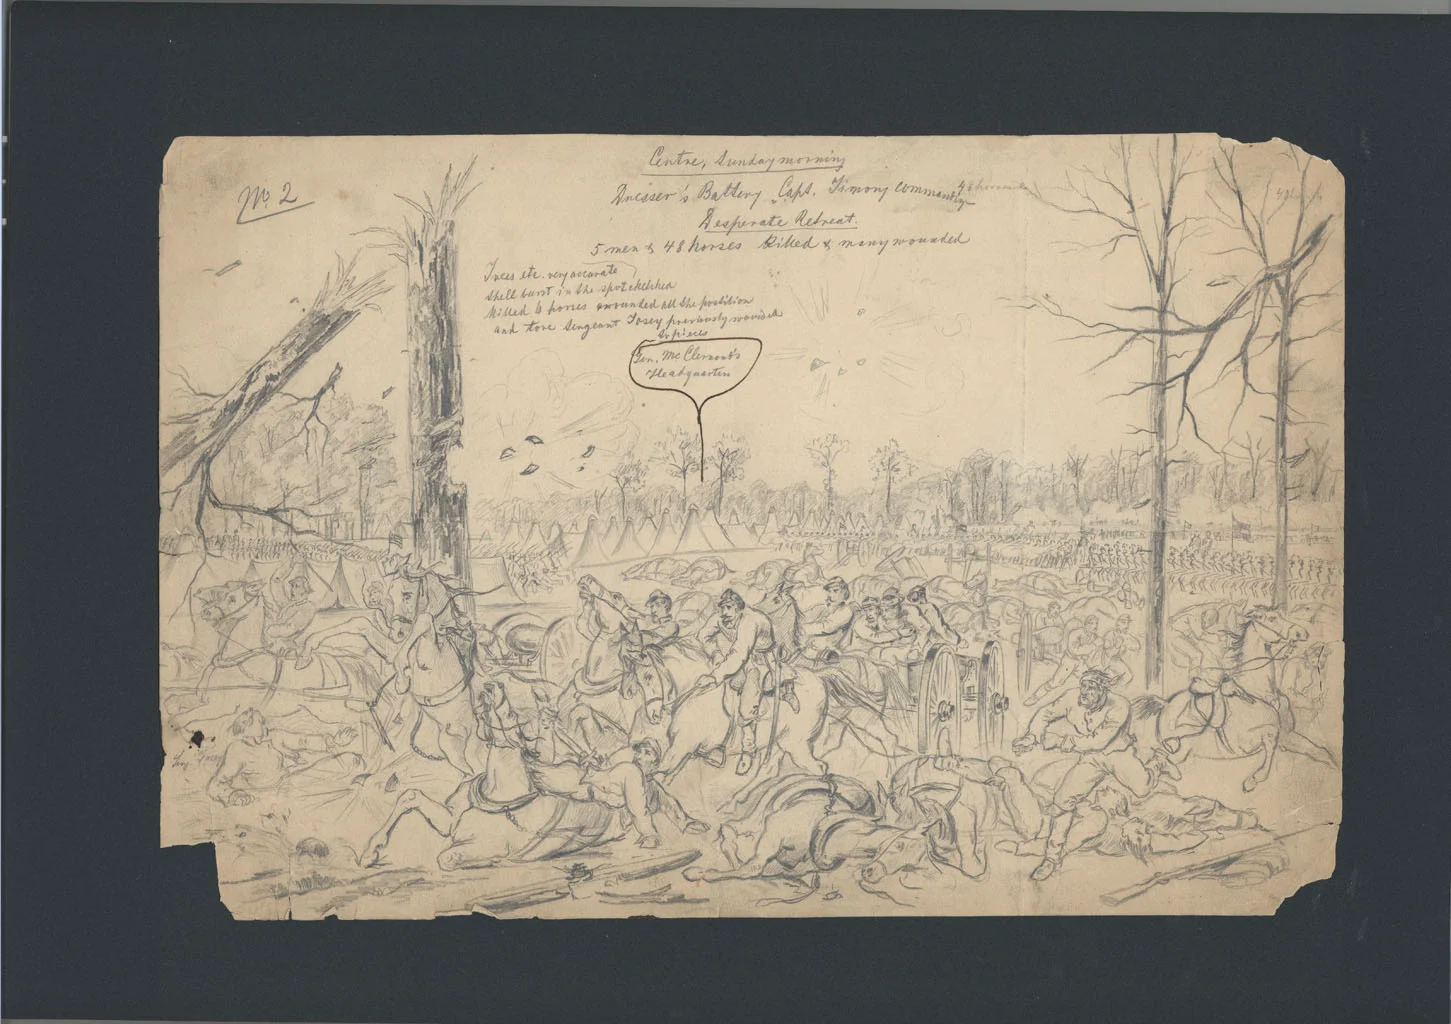 No. 2
Centre, Sunday morning
Dresser's Battery, Capt. Timony commanding
Desperate Retreat.
5 men & 48 horses killed & many wounded
Trees etc. very accurate
Shell burst in the spot sketched
killed 6 horses wounded all the postilion
and tore Sergeant Tosey previously wounded
to pieces
Gen. McClernand's
Headquarters